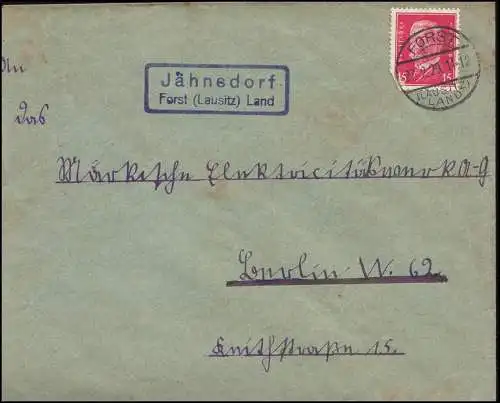 Jähnsdorf
Forst (Lausitz) Land
FORST
(LAUSITZ)
LAND
15 15
An
das
Märkische Elektricitätswerk A-G
Berlin W. 62.
Keithstraße 15.